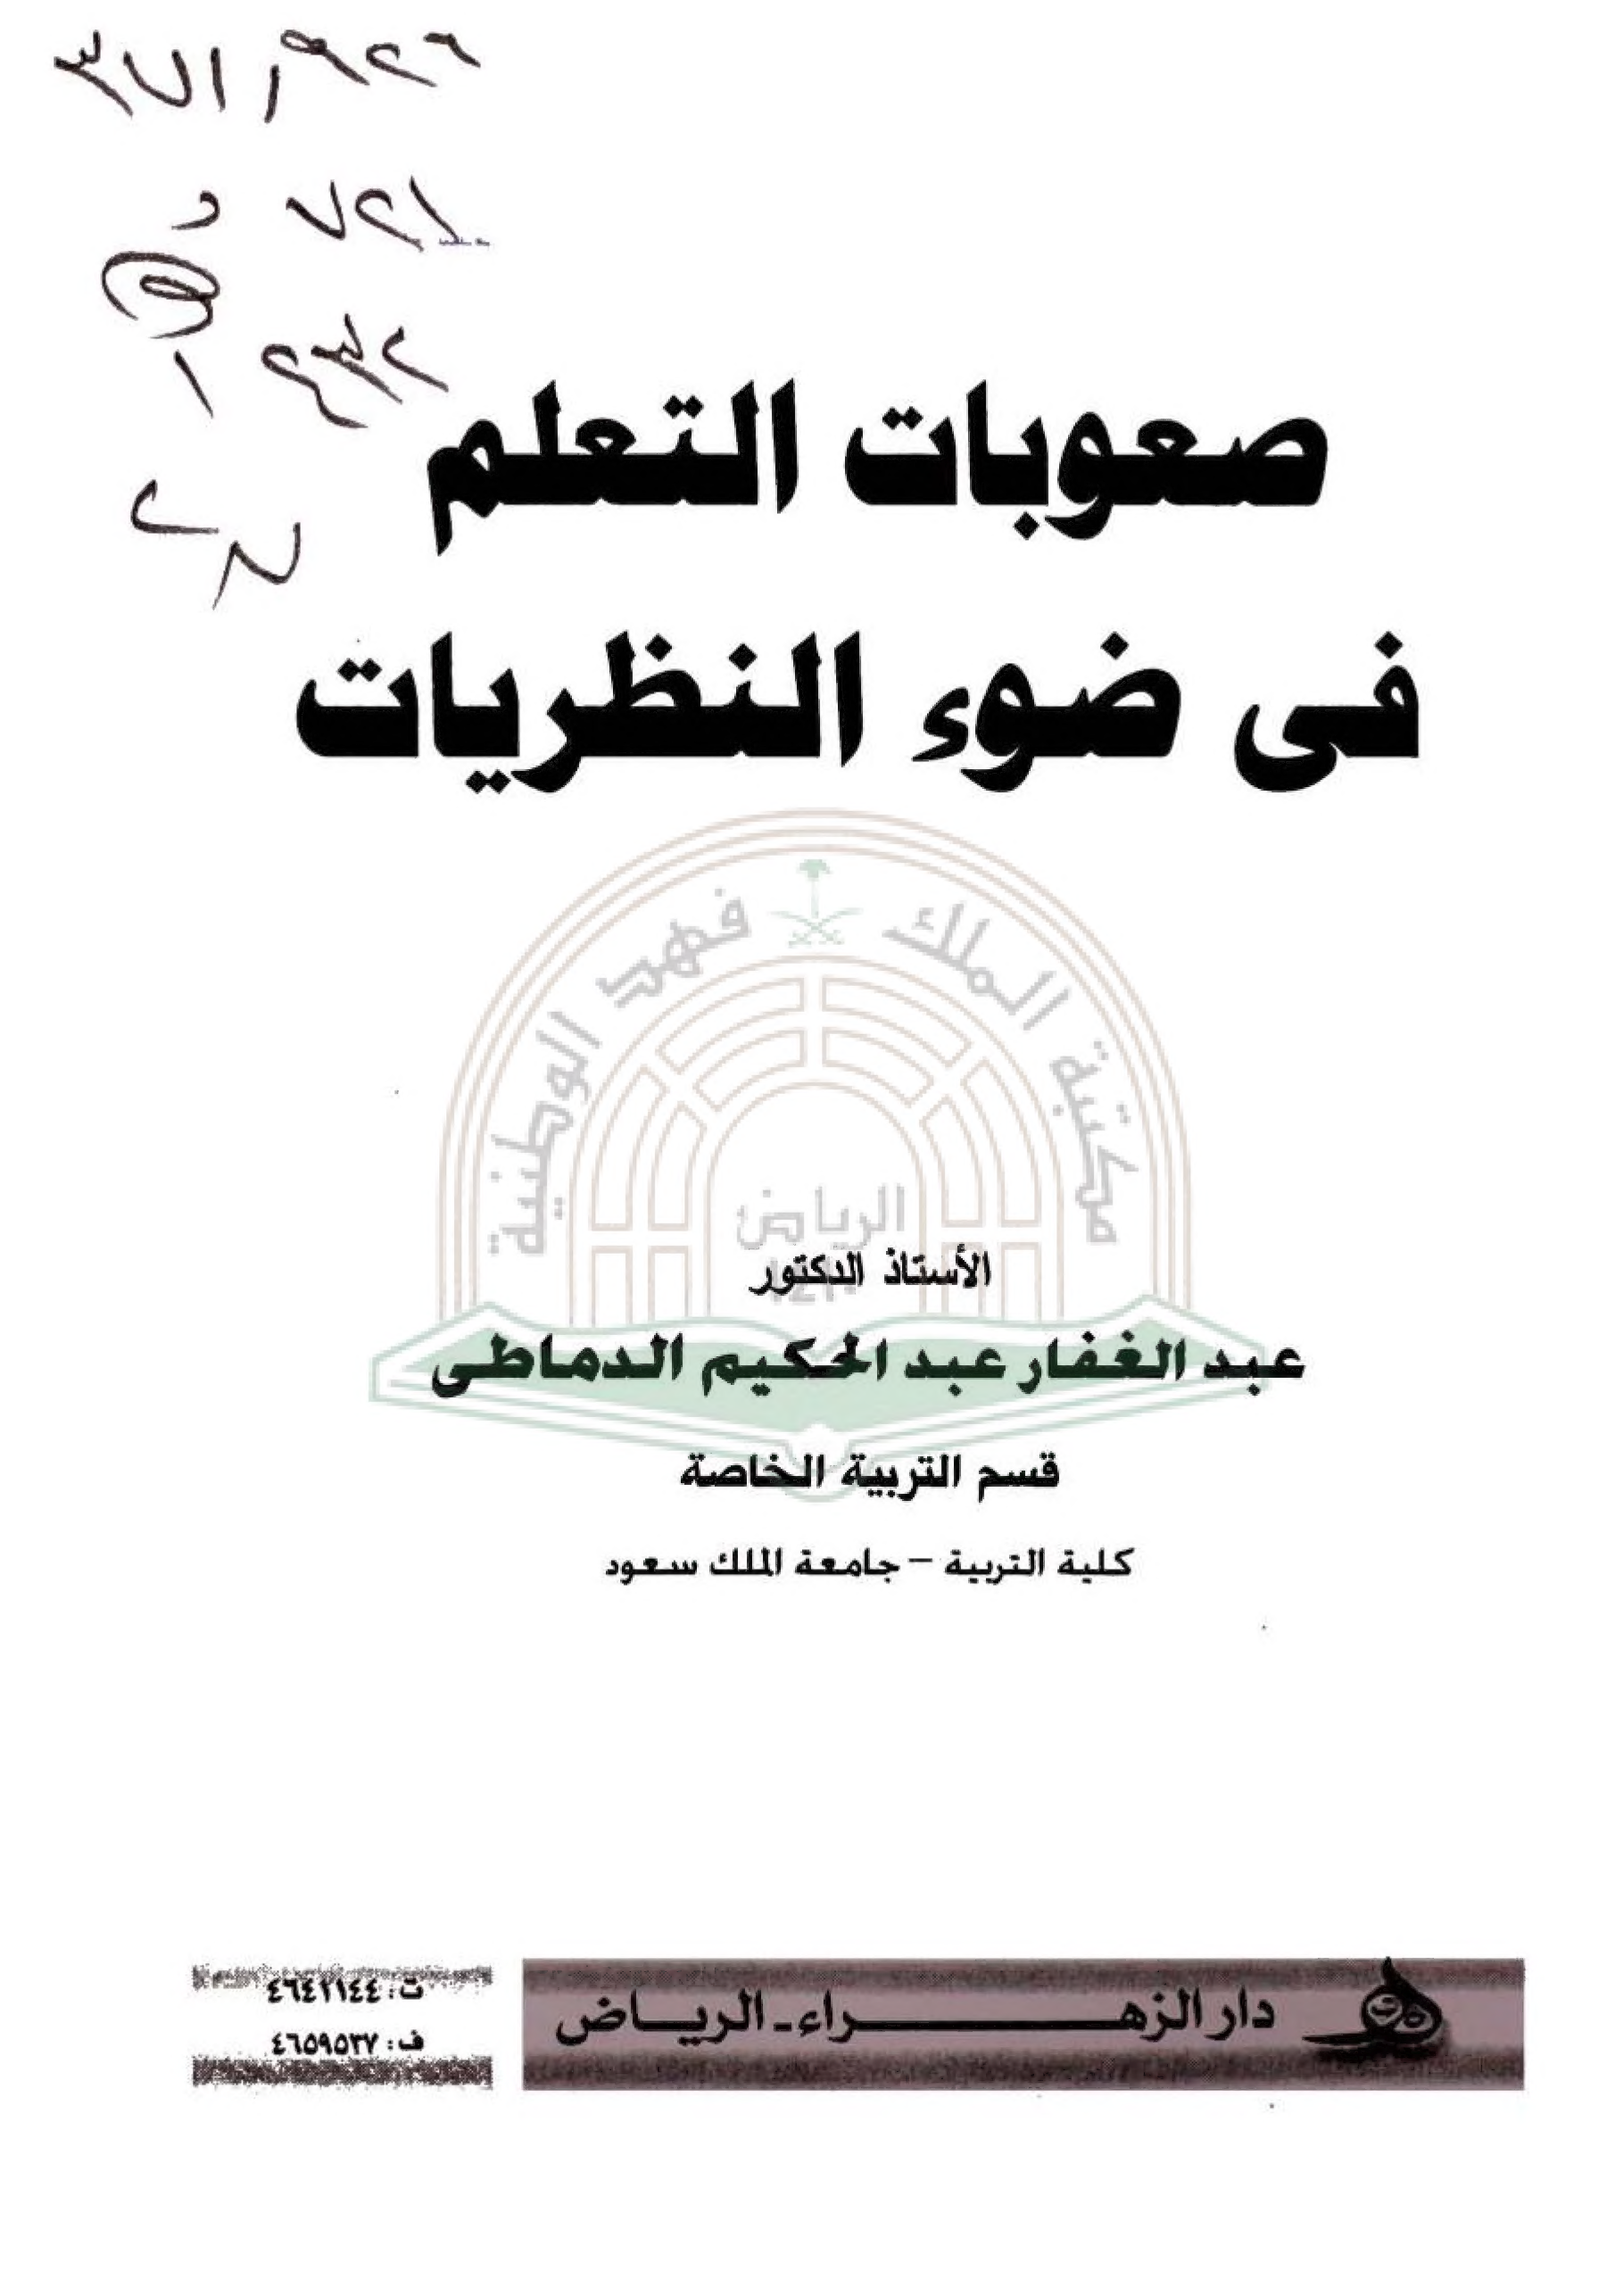 ٣٧١٫٩٢٦
د ٧٢١
صعوبات التعلم
فى ضوء النظريات
مكتبة الملك فهد الوطنية
الرياض
الأستاذ الدكتور
عبد الغفار عبد الحكيم الدماطى
قسم التربية الخاصة
كلية التربية – جامعة الملك سعود
دار الزهـــــــــراء - الريـــاض
ت : ٤٦٤١١٤٤
ف : ٤٦٥٩٥٣٧